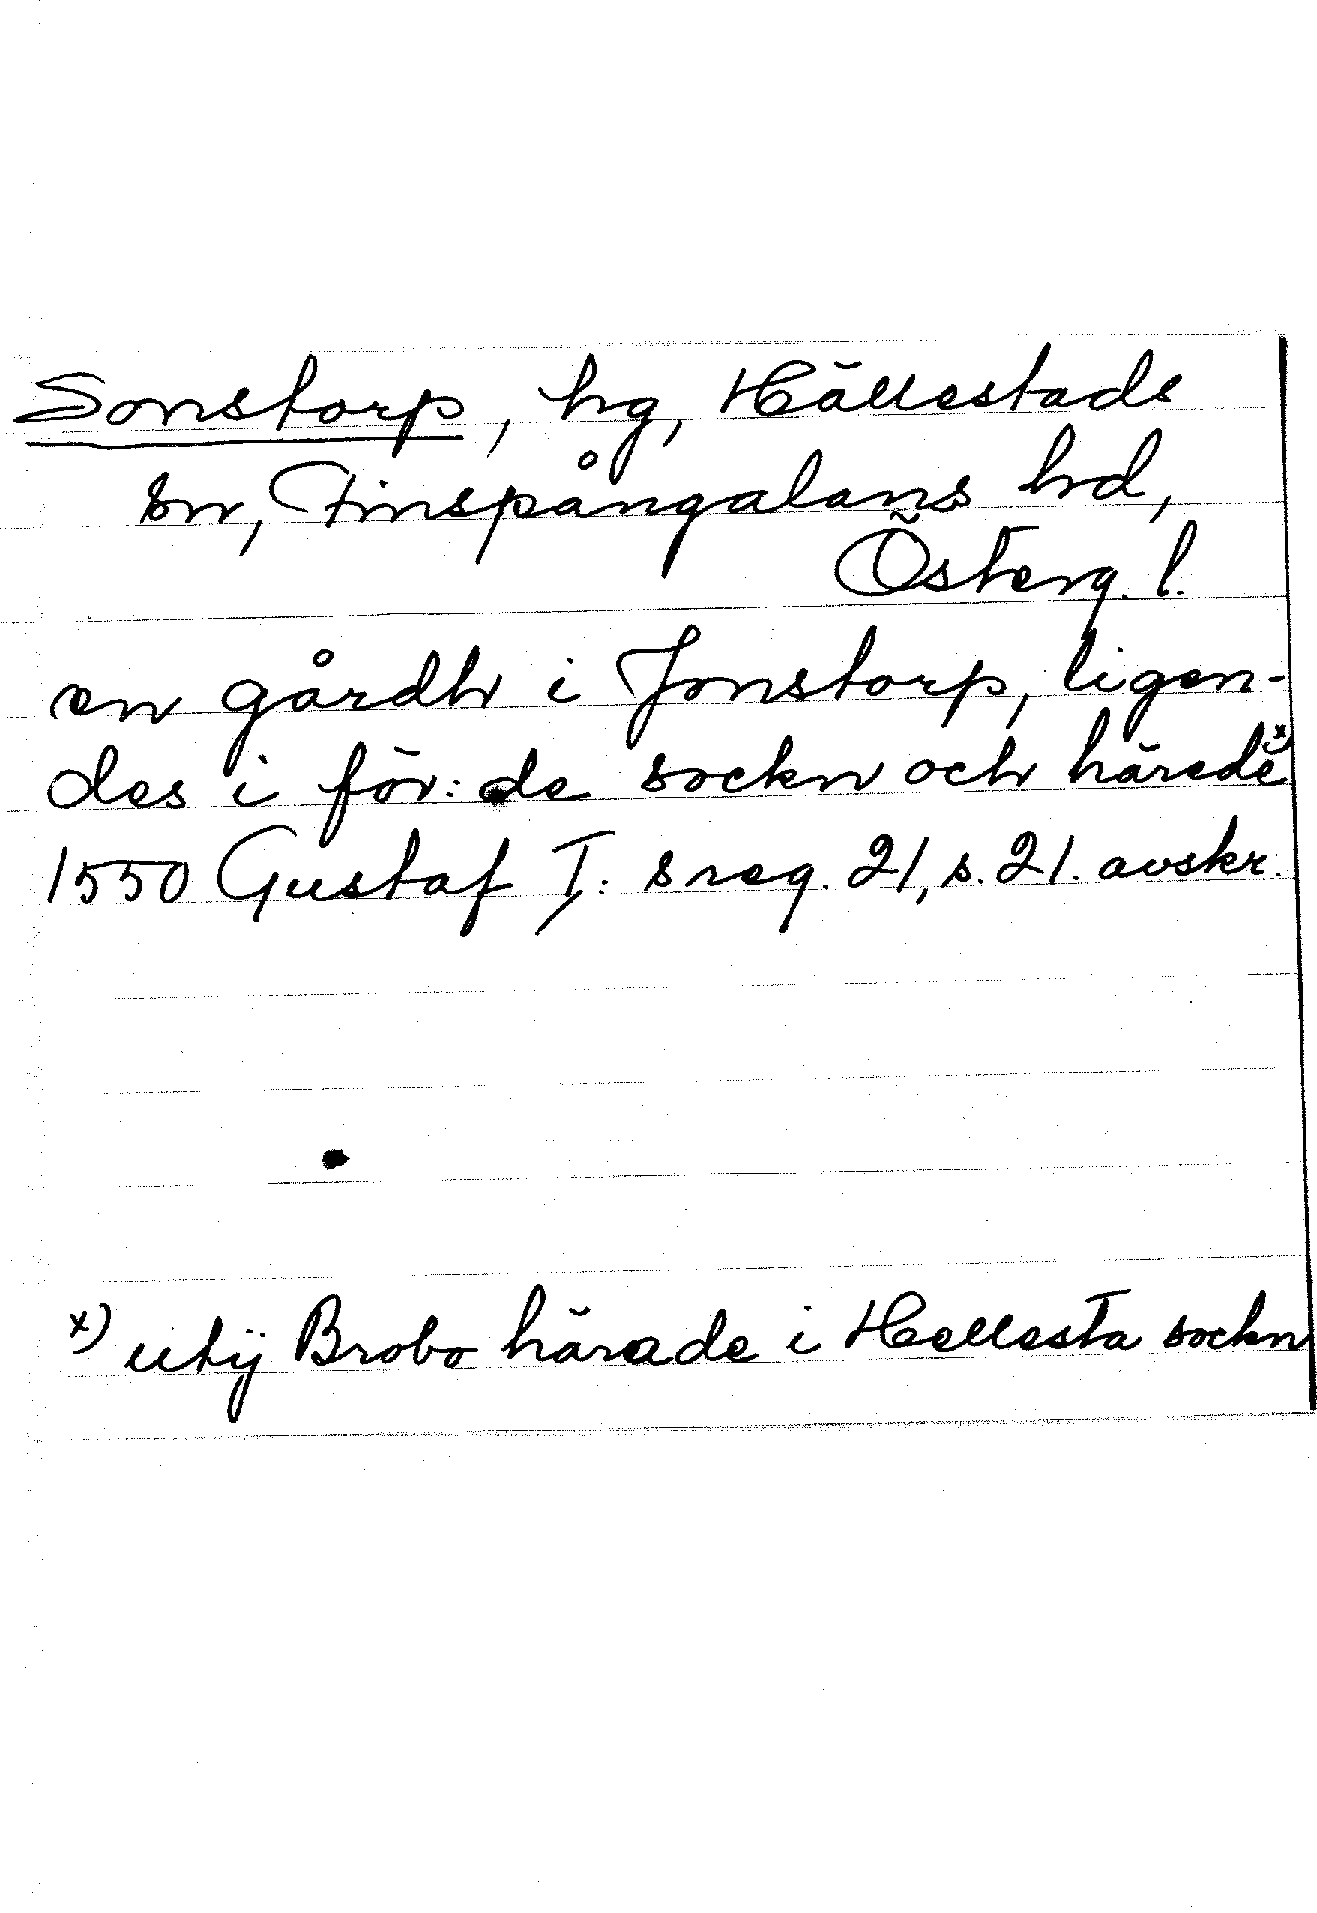 Sonstorp, hg, Hällestads
sn, Finspångaläns hd,
Österg. l.
en gårdh i Jonstorp, ligen-
des i för:de sockn och härede x)
1550 Gustaf I:s reg. 21, s. 21. avskr.
x) utij Brobo härade i Hellesta sockn